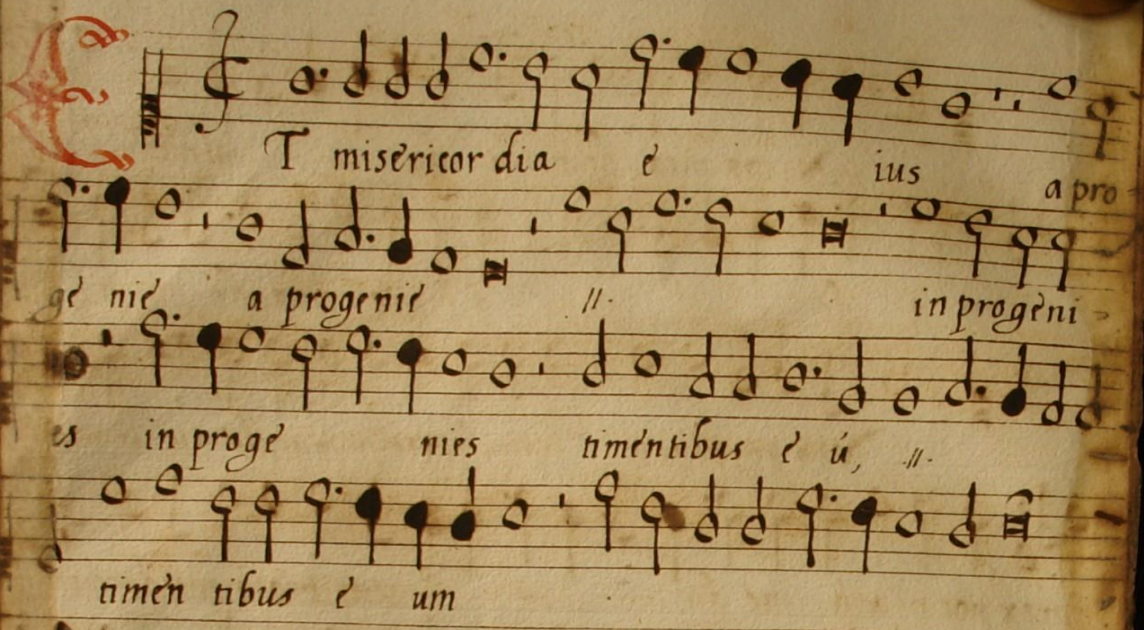 ET misericordia eius a pro
genie a progenie //. in progeni
es in progenies timentibus eú, //.
timentibus eum